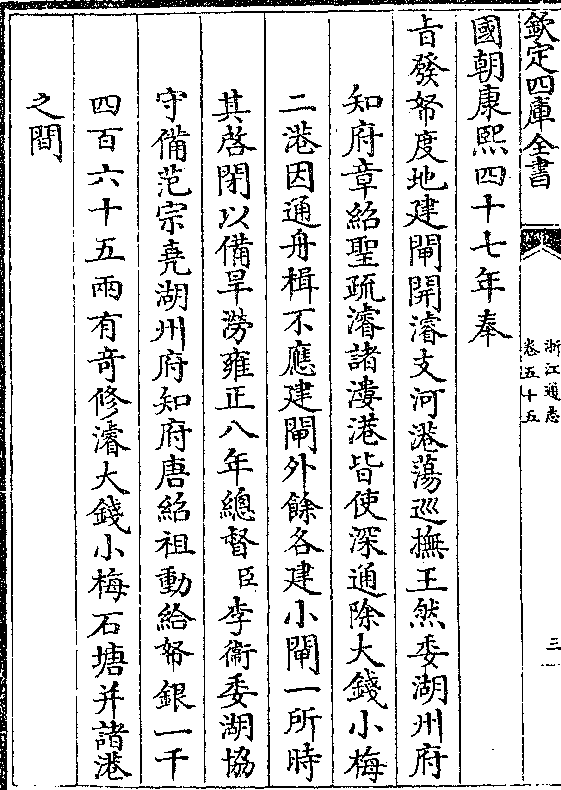 欽定四庫全書
浙江通志
卷五十五
三
國朝康熙四十七年奉
旨發帑度地建閘開濬支河港蕩巡撫王然委湖州府
知府章紹聖疏濬諸漊港皆使深通除大錢小梅
二港因通舟楫不應建閘外餘各建小閘一所時
其啓閉以備旱澇雍正八年總督臣李衞委湖協
守備范宗堯湖州府知府唐紹祖動給帑銀一千
四百六十五兩有奇修濬大錢小梅石塘并諸港
之閘